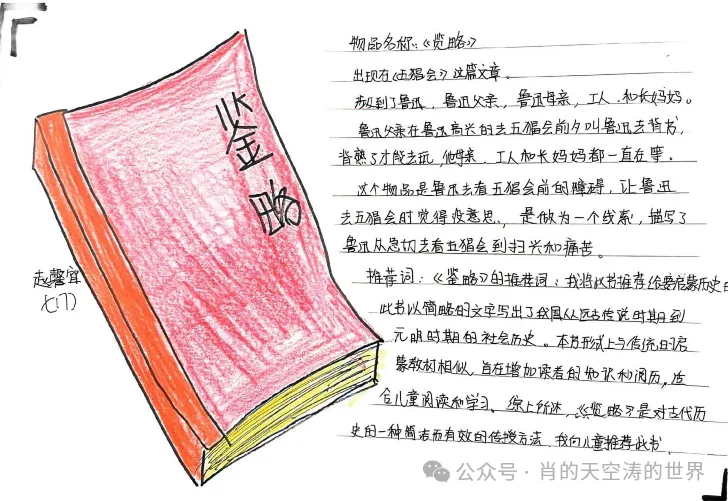 鉴略
赵馨宜
七(7)
物品名称:《览略》
出现在《五猖会》这篇文章。
涉及到了鲁迅,鲁迅父亲,鲁迅母亲,工人和长妈妈。
鲁迅父亲在鲁迅高兴的去五猖会前夕叫鲁迅去背书,
背熟了才能去玩,他母亲、工人和长妈妈都一直在等。
这个物品是鲁迅去看五猖会前的障碍,让鲁迅
去五猖会时觉得没意思,是做为一个线索,描写了
鲁迅从急切去看五猖会到扫兴和痛苦。
推荐词:《鉴略》的推荐词:我将此书推荐给要启蒙历史的
此书以简略的文字写出了我国从远古传说时期到
元明时期的社会历史。本书形式上与传统的启
蒙教材相似,旨在增加读者的知识和阅历,适
合儿童阅读和学习。综上所述,《览略》是对古代历
史的一种简洁而有效的传授方法,我向儿童推荐此书。
公众号·肖的天空涛的世界